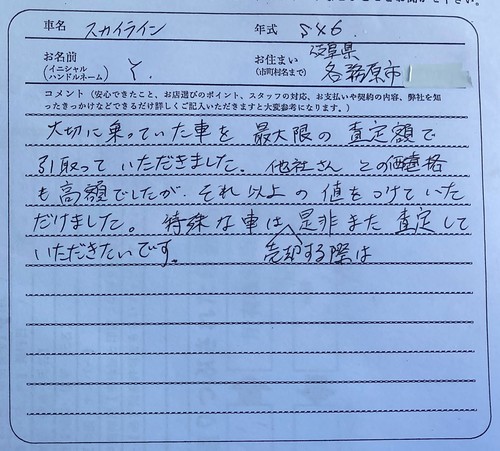 車名 スカイライン 年式 S46.
お名前 (イニシャル ハンドルネーム) Y. お住まい (市町村名まで) 岐阜県 各務原市
コメント（安心できたこと、お店選びのポイント、スタッフの対応、お支払いや契約の内容、弊社を知
ったきっかけなどできるだけ詳しくご記入いただきますと大変参考になります。）
大切に乗っていた車を 最大限の 査定額で
引取って いただきました。他社さん との価格
も高額でしたが、それ以上 の 値をつけていた
だけました。特殊な車は 是非また 査定して
いただきたいです。 売却する際は